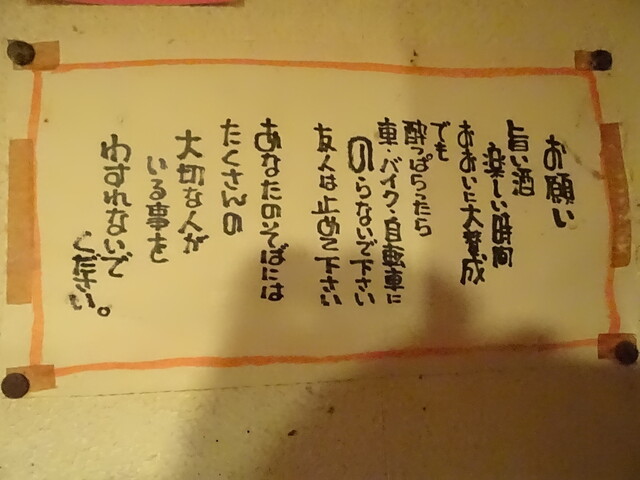 お願い
旨い酒
楽しい時間
おおいに大賛成
でも
酔っぱらったら
車・バイク・自転車に
のらないで下さい
友人は止めて下さい
あなたのそばには
たくさんの
大切な人が
いる事を
わすれないで
ください。